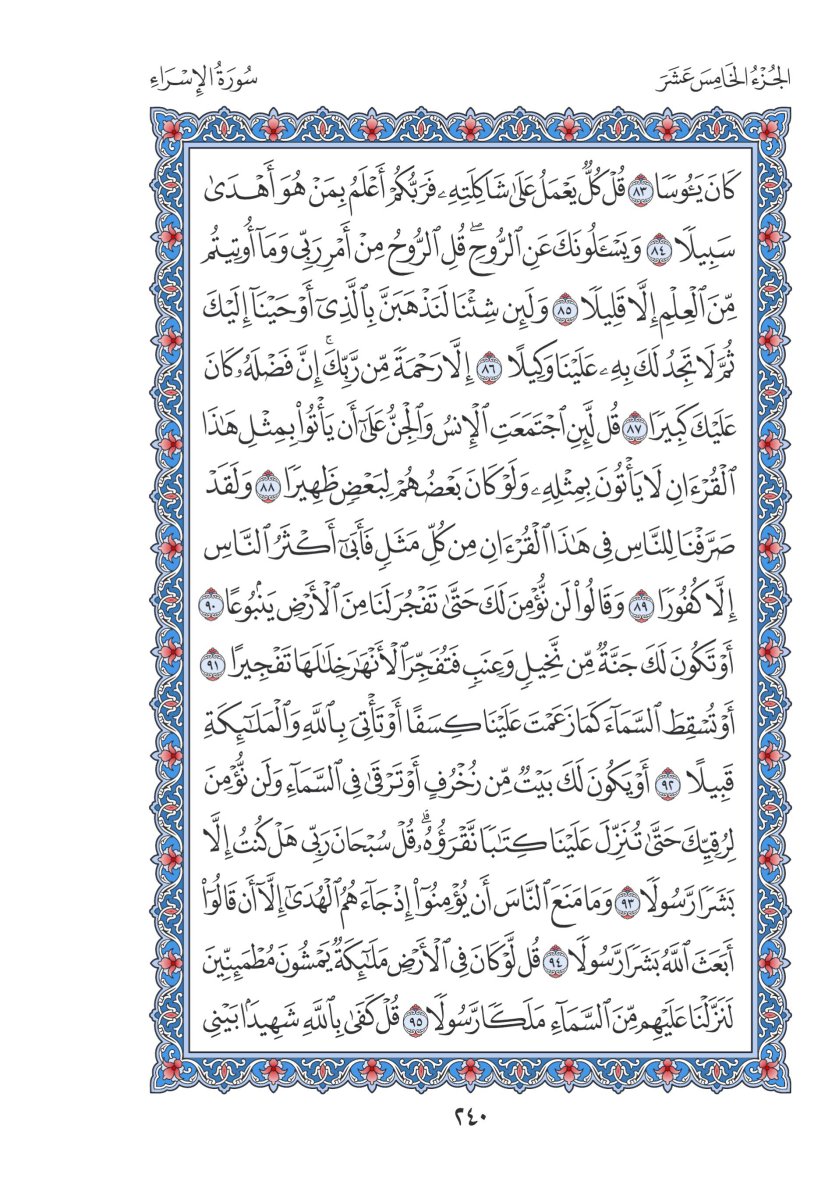 الجُزْءُ الخَامِسَ عَشَرَ
سُورَةُ الإِسْرَاءِ
كَانَ يَـُٔوسٗا ٨٣ قُلۡ كُلّٞ يَعۡمَلُ عَلَىٰ شَاكِلَتِهِۦ فَرَبُّكُمۡ أَعۡلَمُ بِمَنۡ هُوَ أَهۡدَىٰ
سَبِيلٗا ٨٤ وَيَسۡـَٔلُونَكَ عَنِ ٱلرُّوحِۖ قُلِ ٱلرُّوحُ مِنۡ أَمۡرِ رَبِّي وَمَآ أُوتِيتُم
مِّنَ ٱلۡعِلۡمِ إِلَّا قَلِيلٗا ٨٥ وَلَئِن شِئۡنَا لَنَذۡهَبَنَّ بِٱلَّذِيٓ أَوۡحَيۡنَآ إِلَيۡكَ
ثُمَّ لَا تَجِدُ لَكَ بِهِۦ عَلَيۡنَا وَكِيلًا ٨٦ إِلَّا رَحۡمَةٗ مِّن رَّبِّكَۚ إِنَّ فَضۡلَهُۥ كَانَ
عَلَيۡكَ كَبِيرٗا ٨٧ قُل لَّئِنِ ٱجۡتَمَعَتِ ٱلۡإِنسُ وَٱلۡجِنُّ عَلَىٰٓ أَن يَأۡتُواْ بِمِثۡلِ هَٰذَا
ٱلۡقُرۡءَانِ لَا يَأۡتُونَ بِمِثۡلِهِۦ وَلَوۡ كَانَ بَعۡضُهُمۡ لِبَعۡضٖ ظَهِيرٗا ٨٨ وَلَقَدۡ
صَرَّفۡنَا لِلنَّاسِ فِي هَٰذَا ٱلۡقُرۡءَانِ مِن كُلِّ مَثَلٖ فَأَبَىٰٓ أَكۡثَرُ ٱلنَّاسِ
إِلَّا كُفُورٗا ٨٩ وَقَالُواْ لَن نُّؤۡمِنَ لَكَ حَتَّىٰ تَفۡجُرَ لَنَا مِنَ ٱلۡأَرۡضِ يَنۢبُوعًا ٩٠
أَوۡ تَكُونَ لَكَ جَنَّةٞ مِّن نَّخِيلٖ وَعِنَبٖ فَتُفَجِّرَ ٱلۡأَنۡهَٰرَ خِلَٰلَهَا تَفۡجِيرًا ٩١
أَوۡ تُسۡقِطَ ٱلسَّمَآءَ كَمَا زَعَمۡتَ عَلَيۡنَا كِسَفًا أَوۡ تَأۡتِيَ بِٱللَّهِ وَٱلۡمَلَٰٓئِكَةِ
قَبِيلًا ٩٢ أَوۡ يَكُونَ لَكَ بَيۡتٞ مِّن زُخۡرُفٍ أَوۡ تَرۡقَىٰ فِي ٱلسَّمَآءِ وَلَن نُّؤۡمِنَ
لِرُقِيِّكَ حَتَّىٰ تُنَزِّلَ عَلَيۡنَا كِتَٰبٗا نَّقۡرَؤُهُۥۗ قُلۡ سُبۡحَانَ رَبِّي هَلۡ كُنتُ إِلَّا
بَشَرٗا رَّسُولٗا ٩٣ وَمَا مَنَعَ ٱلنَّاسَ أَن يُؤۡمِنُوٓاْ إِذۡ جَآءَهُمُ ٱلۡهُدَىٰٓ إِلَّآ أَن قَالُوٓاْ
أَبَعَثَ ٱللَّهُ بَشَرٗا رَّسُولٗا ٩٤ قُل لَّوۡ كَانَ فِي ٱلۡأَرۡضِ مَلَٰٓئِكَةٞ يَمۡشُونَ مُطۡمَئِنِّينَ
لَنَزَّلۡنَا عَلَيۡهِم مِّنَ ٱلسَّمَآءِ مَلَكٗا رَّسُولٗا ٩٥ قُلۡ كَفَىٰ بِٱللَّهِ شَهِيدَۢا بَيۡنِي
٢٤٠